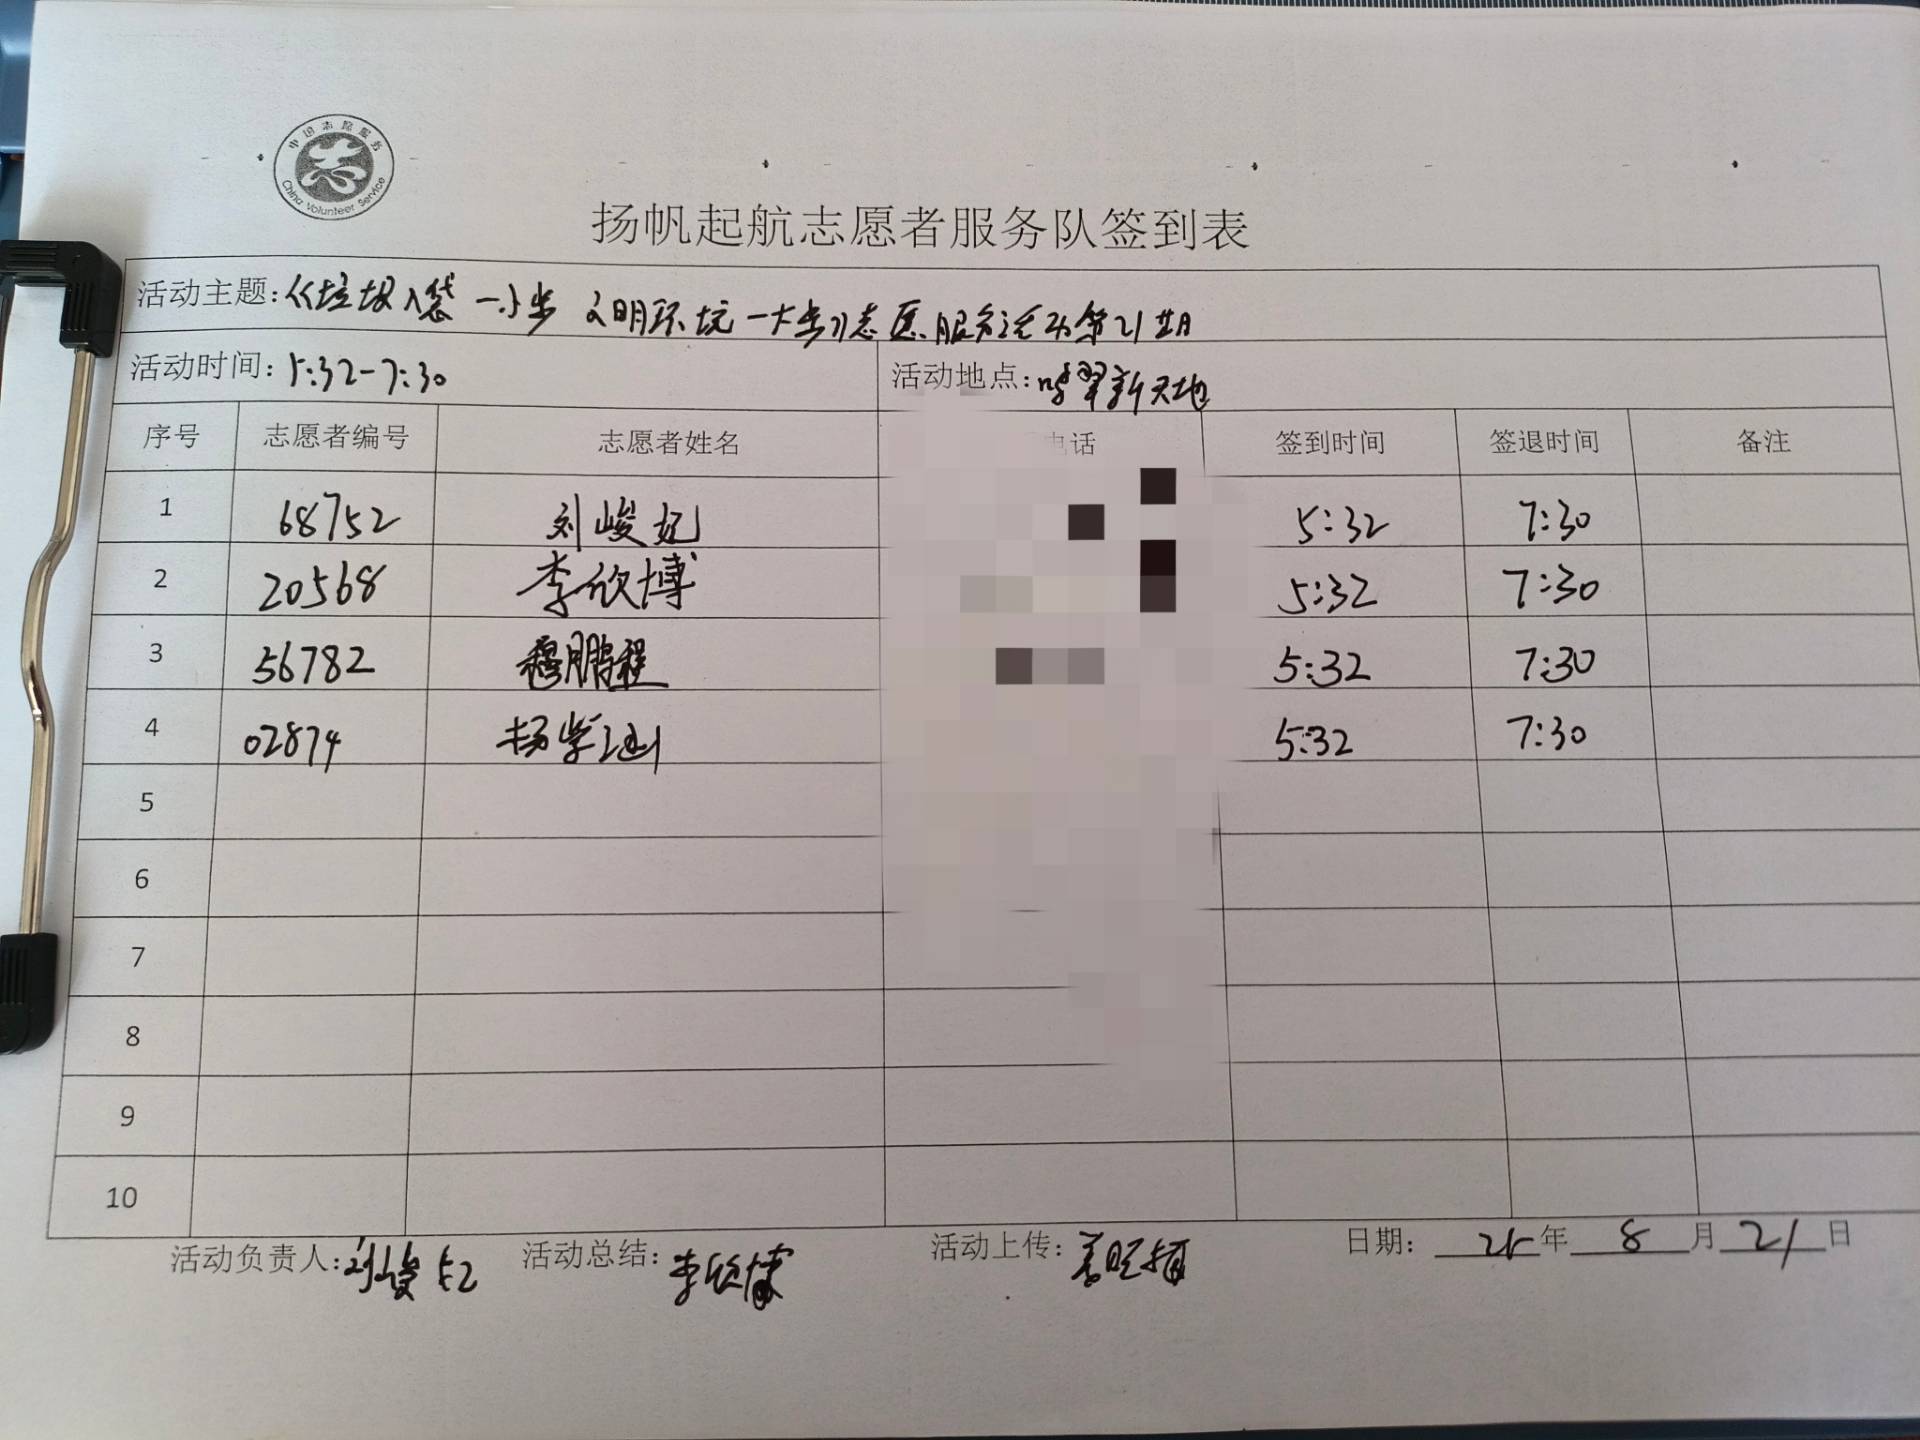 中国志愿服务
China Volunteer Service
扬帆起航志愿者服务队签到表
活动主题:《垃圾入袋一小步 文明环境一大步》志愿服务活动第21期
活动时间:5:32-7:30 活动地点:鸣翠新天地
序号 志愿者编号 志愿者姓名 电话 签到时间 签退时间 备注
1 68752 刘峻 5:32 7:30
2 20568 李欣博 5:32 7:30
3 56782 穆鹏程 5:32 7:30
4 02874 杨紫 5:32 7:30
5
6
7
8
9
10
活动负责人:刘峻 活动总结:李欣博 活动上传: 日期: 25年 8 月 21 日